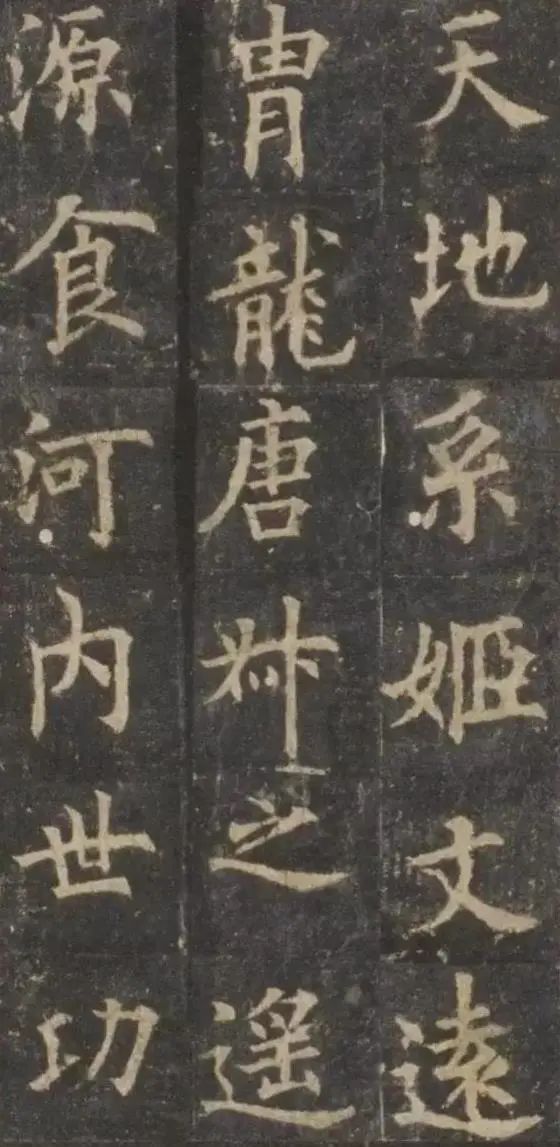 天地系姬文遠
胄龍唐叔之遥
源食河内世功